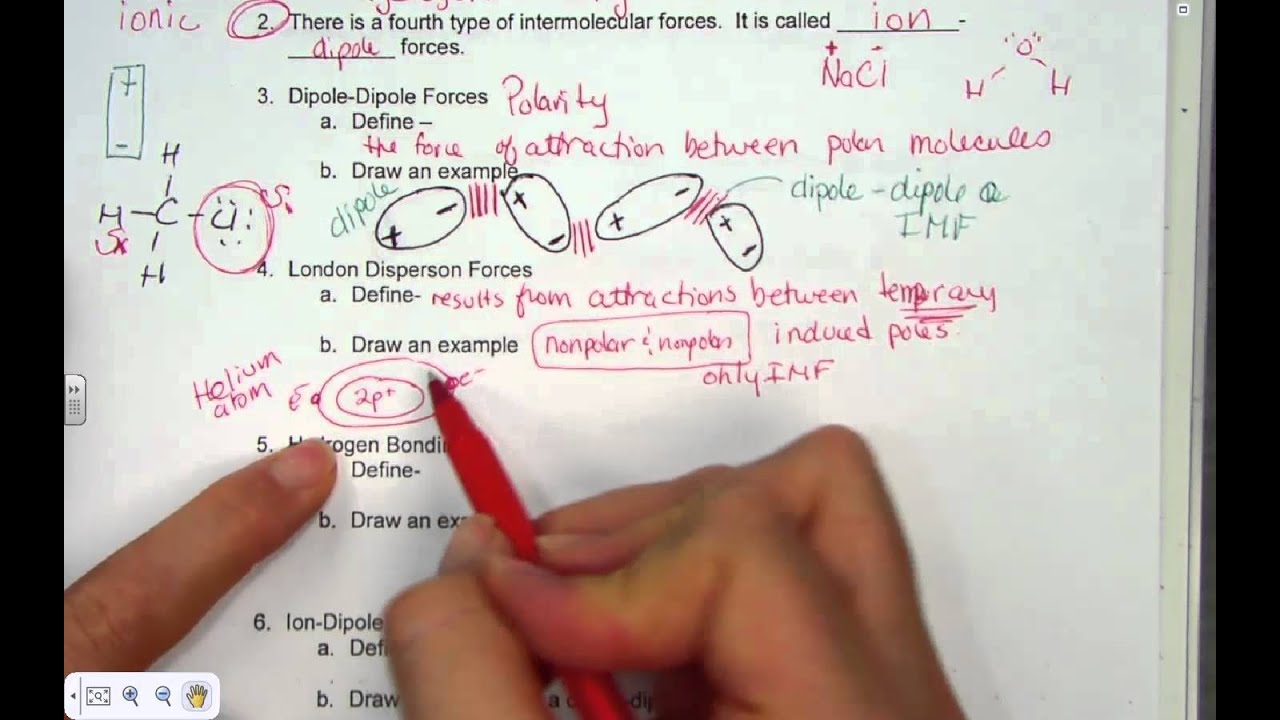 ionic
2. There is a fourth type of intermolecular forces. It is called ion -
dipole forces.
+ -
NaCl
O
H H
+
-
3. Dipole-Dipole Forces Polarity
a. Define –
the force of attraction between polar molecules
b. Draw an example
H
H – C – Cl
H
dipole
+ - + - + - + -
dipole - dipole
IMF
4. London Disperson Forces
a. Define- results from attractions between temporary
induced poles.
b. Draw an example nonpolar & nonpolar
only IMF
Helium
atom
e- 2p+ e-
5. Hydrogen Bondi
Define-
b. Draw an exa
6. Ion-Dipole
a. Defi
b. Draw a dip